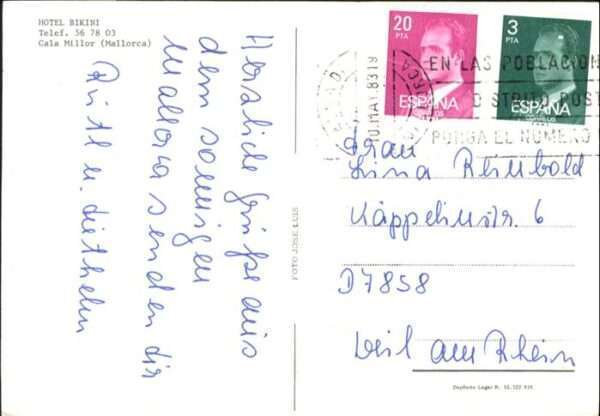 HOTEL BIKINI
Telef. 56 78 03
Cala Millor (Mallorca)
Herzliche Grüße aus
dem sonnigen
Mallorca senden dir
Rutl u. diethelm
FOTO JOSE LUIS
20
PTA
ESPAÑA
3
PTA
ESPAÑA
CORREOS
10.MAY.83 19
EN LAS POBLACION
DISTRITO POST
PONGA EL NUMERO
Frau
Lina Reinbold
Käppelinstr. 6
D 7858
Weil am Rhein